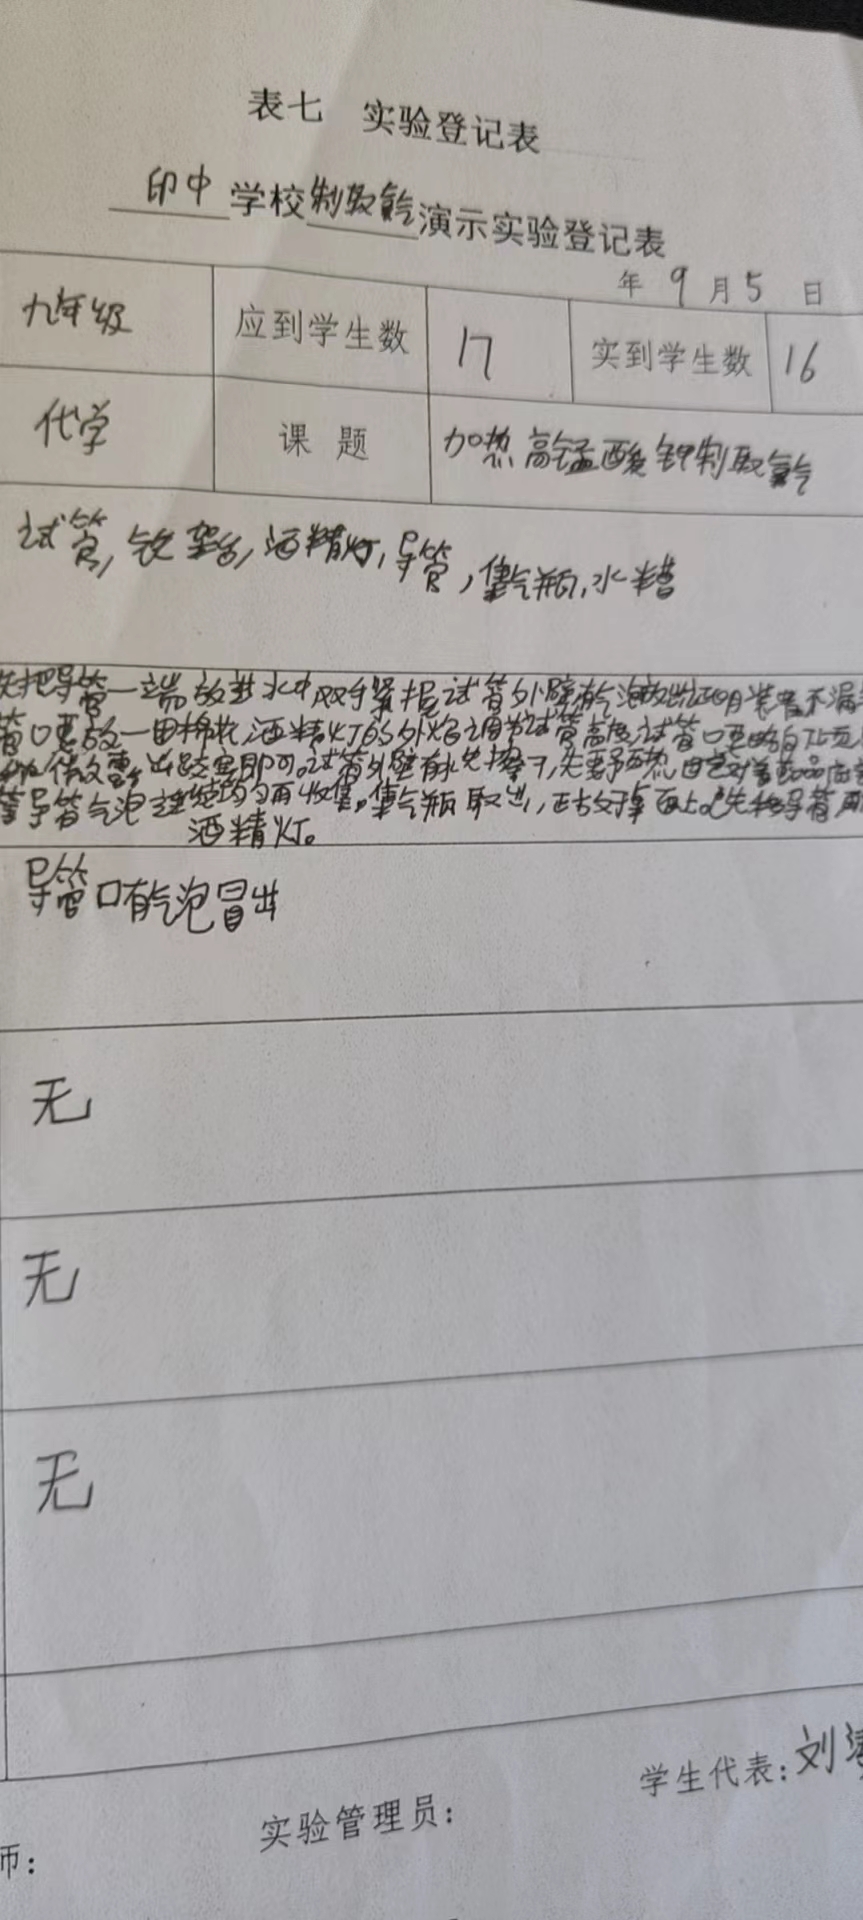 表七 实验登记表
印中学校制取氧气演示实验登记表
年9月5日
九年级 应到学生数 17 实到学生数 16
化学 课题 加热高锰酸钾制取氧气
试管,铁架台,酒精灯,导管,集气瓶,水槽
先把导管一端放进水中双手紧握试管外壁有气泡放出证明装置不漏
管口要放一团棉花,酒精灯的外焰调节试管高度,试管口要略向下
即可。试管外壁有水先擦干,先要预热
等导管气泡连续均匀再收集。集气瓶取出,正放于桌面上。先移导管
酒精灯。
导管口有气泡冒出
无
无
无
学生代表:刘
实验管理员:
师: